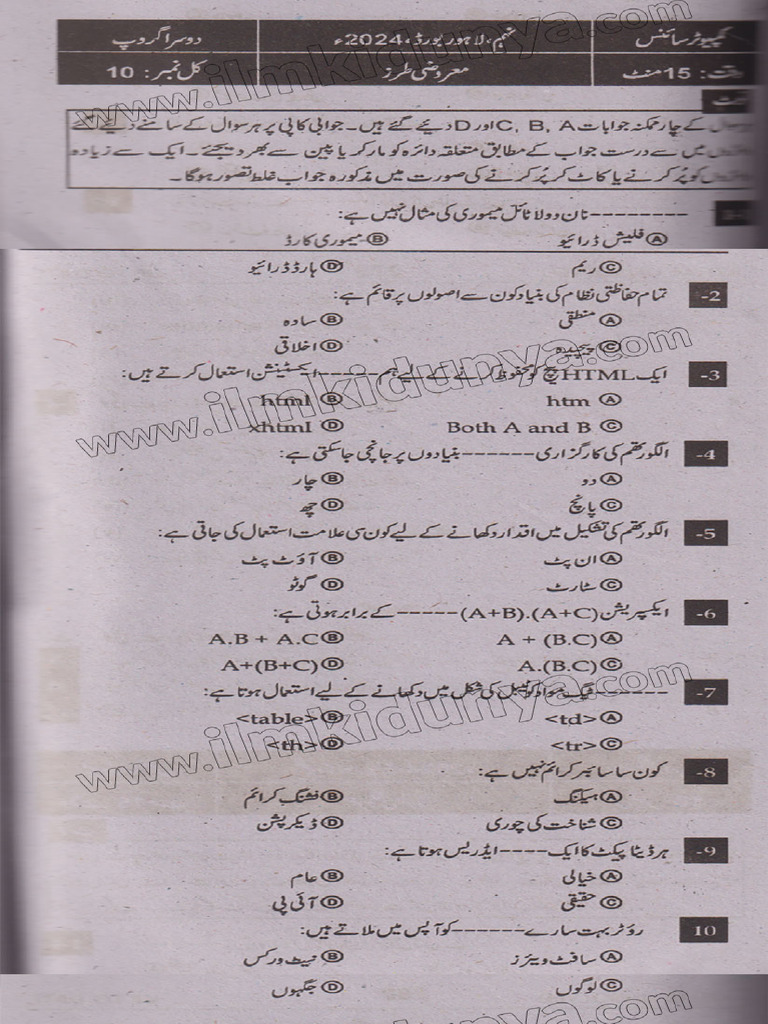 کمپیوٹر سائنس نہم، لاہور بورڈ، 2024ء دوسرا گروپ
وقت: 15 منٹ معروضی طرز کل نمبر: 10
سوال کے چار ممکنہ جوابات C, B, A اور D دیئے گئے ہیں۔ جوابی کاپی پر ہر سوال کے سامنے دیئے گئے
میں سے درست جواب کے مطابق متعلقہ دائرہ کو مارکر یا پین سے بھر دیجئے۔ ایک سے زیادہ
کو پُر کرنے یا کاٹ کر پُر کرنے کی صورت میں مذکورہ جواب غلط تصور ہو گا۔
-------- نان وولاٹائل میموری کی مثال نہیں ہے:
Ⓐ فلیش ڈرائیو Ⓑ میموری کارڈ
Ⓒ ریم Ⓓ ہارڈ ڈرائیو
-2 تمام حفاظتی نظام کی بنیاد کون سے اصولوں پر قائم ہے:
Ⓐ منطقی Ⓑ سادہ
Ⓒ پیچیدہ Ⓓ اخلاقی
-3 ایک HTML پیج کو محفوظ کرنے کے لیے ہم ------ ایکسٹینشن استعمال کرتے ہیں:
Ⓐ htm Ⓑ html
Ⓒ Both A and B Ⓓ xhtml
-4 الگورتھم کی کارگزاری ------ بنیادوں پر جانچی جا سکتی ہے:
Ⓐ دو Ⓑ چار
Ⓒ پانچ Ⓓ چھ
-5 الگورتھم کی تشکیل میں اقدار دکھانے کے لیے کون سی علامت استعمال کی جاتی ہے:
Ⓐ ان پٹ Ⓑ آؤٹ پٹ
Ⓒ سٹارٹ Ⓓ گوٹو
-6 ایکسپریشن (A+B).(A+C) ----- کے برابر ہوتی ہے:
Ⓐ A + (B.C) Ⓑ A.B + A.C
Ⓒ A.(B.C) Ⓓ A+(B+C)
-7 ------ ٹیگ مواد کو ٹیبل کی شکل میں دکھانے کے لیے استعمال ہوتا ہے:
Ⓐ <td> Ⓑ <table>
Ⓒ <tr> Ⓓ <th>
-8 کون سا سائبر کرائم نہیں ہے:
Ⓐ ہیکنگ Ⓑ فشنگ کرائم
Ⓒ شناخت کی چوری Ⓓ ڈیکرپشن
-9 ہر ڈیٹا پیکٹ کا ایک ---- ایڈریس ہوتا ہے:
Ⓐ خیالی Ⓑ عام
Ⓒ حقیقی Ⓓ آئی پی
10 روٹر بہت سارے ------ کو آپس میں ملاتے ہیں:
Ⓐ سافٹ ویئرز Ⓑ نیٹ ورکس
Ⓒ لوگوں Ⓓ جگہوں
www.ilmkidunya.com
www.ilmkidunya.com
www.ilmkidunya.com
www.ilmkidunya.com